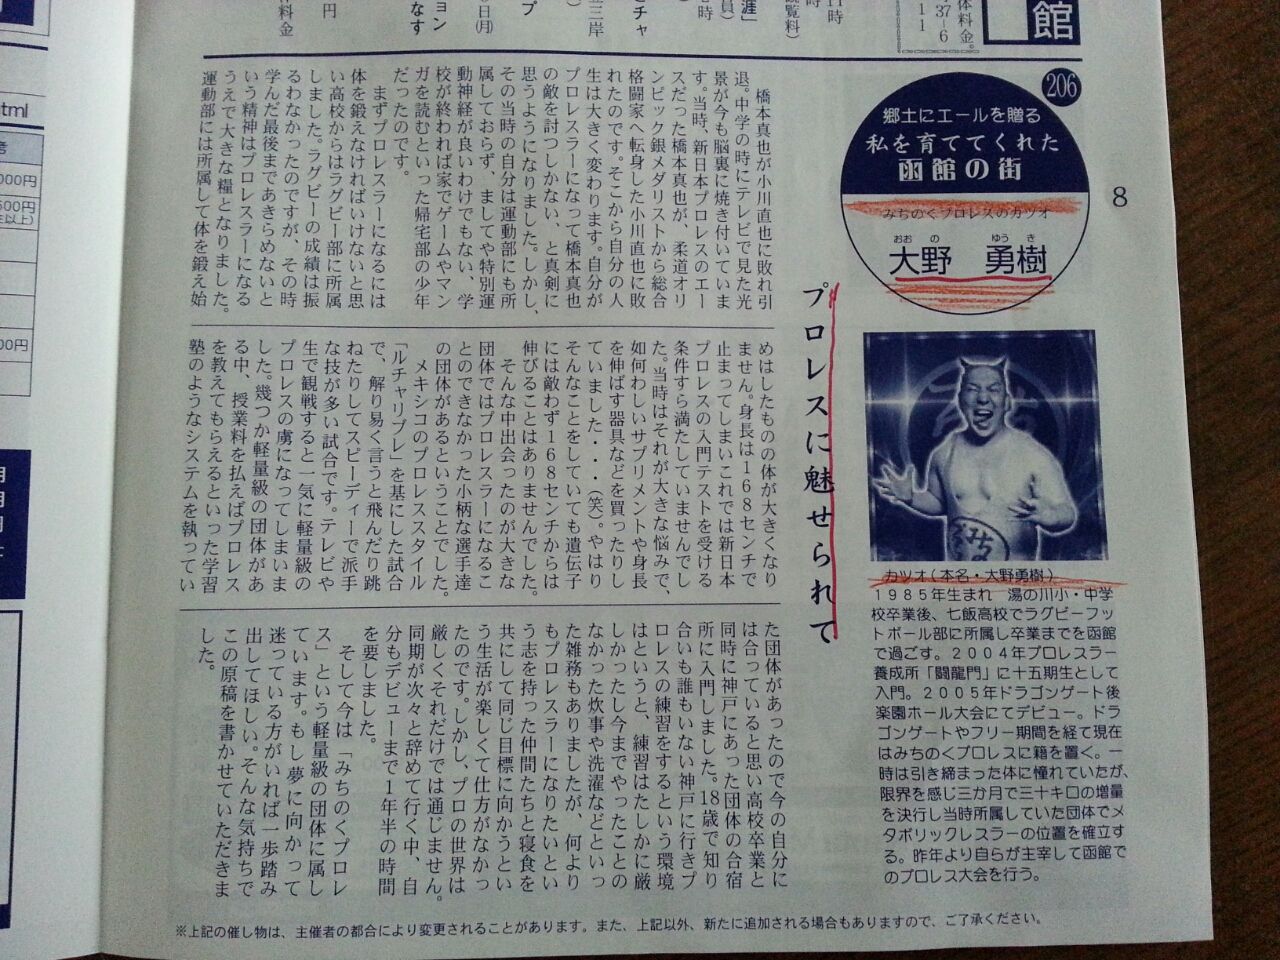 館
8
206
郷土にエールを贈る
私を育ててくれた
函館の街
みちのくプロレスのカツオ
おおの ゆうき
大野 勇樹
プロレスに魅せられて
橋本真也が小川直也に敗れ引
退。中学の時にテレビで見た光
景が今も脳裏に焼き付いていま
す。当時、新日本プロレスのエー
スだった橋本真也が、柔道オリ
ンピック銀メダリストから総合
格闘家へ転身した小川直也に敗
れたのです。そこから自分の人
生は大きく変わります。自分が
プロレスラーになって橋本真也
の敵を討つしかない、と真剣に
思うようになりました。しかし、
その当時の自分は運動部にも所
属しておらず、ましてや特別運
動神経が良いわけでもない、学
校が終われば家でゲームやマン
ガを読むといった帰宅部の少年
だったのです。
まずプロレスラーになるには
体を鍛えなければいけないと思
い高校からはラグビー部に所属
しました。ラグビーの成績は振
るわなかったのですが、その時
学んだ最後まであきらめないと
いう精神はプロレスラーになる
うえで大きな糧となりました。
運動部には所属して体を鍛え始
めはしたものの体が大きくなり
ません。身長は168センチで
止まってしまいこれでは新日本
プロレスの入門テストを受ける
条件すら満たしていませんでし
た。当時はそれが大きな悩みで、
如何わしいサプリメントや身長
を伸ばす器具などを買ったりし
ていました・・・(笑)。やはり
そんなことをしていても遺伝子
には敵わず168センチからは
伸びることはありませんでした。
そんな中出会ったのが大きな
団体ではプロレスラーになるこ
とのできなかった小柄な選手達
の団体があるということでした。
メキシコのプロレススタイル
「ルチャリブレ」を基にした試合
で、解り易く言うと飛んだり跳
ねたりしてスピーディーで派手
な技が多い試合です。テレビや
生で観戦すると一気に軽量級の
プロレスの虜になってしまいま
した。幾つか軽量級の団体があ
る中、授業料を払えばプロレス
を教えてもらえるといった学習
塾のようなシステムを執ってい
た団体があったので今の自分に
は合っていると思い高校卒業と
同時に神戸にあった団体の合宿
所に入門しました。18歳で知り
合いも誰もいない神戸に行きプ
ロレスの練習をするという環境
はというと、練習はたしかに厳
しかったし今までやったことの
なかった炊事や洗濯などといっ
た雑務もありましたが、何より
もプロレスラーになりたいとい
う志を持った仲間たちと寝食を
共にして同じ目標に向かうとい
う生活が楽しくて仕方がなかっ
たのです。しかし、プロの世界は
厳しくそれだけでは通じません。
同期が次々と辞めて行く中、自
分もデビューまで1年半の時間
を要しました。
そして今は「みちのくプロレ
ス」という軽量級の団体に属し
ています。もし夢に向かって
迷っている方がいれば一歩踏み
出してほしい。そんな気持ちで
この原稿を書かせていただきま
した。
カツオ(本名・大野勇樹)
1985年生まれ 湯の川小・中学
校卒業後、七飯高校でラグビーフッ
トボール部に所属し卒業までを函館
で過ごす。2004年プロレスラー
養成所「闘龍門」に十五期生として
入門。2005年ドラゴンゲート後
楽園ホール大会にてデビュー。ドラ
ゴンゲートやフリー期間を経て現在
はみちのくプロレスに籍を置く。一
時は引き締まった体に憧れていたが、
限界を感じ三か月で三十キロの増量
を決行し当時所属していた団体でメ
タボリックレスラーの位置を確立す
る。昨年より自らが主宰して函館で
のプロレス大会を行う。
※上記の催し物は、主催者の都合により変更されることがあります。また、上記以外、新たに追加される場合もありますので、ご了承ください。